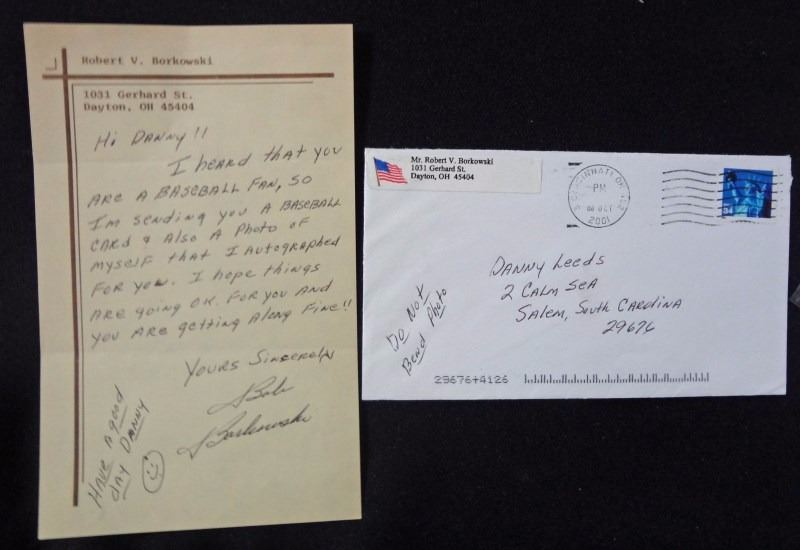 Robert V. Borkowski
1031 Gerhard St.
Dayton, OH 45404
Hi Danny!!
I heard that you
are a baseball fan, so
I'm sending you a baseball
card & also a photo of
myself that I autographed
for you. I hope things
are going OK. for you and
you are getting along fine!!
Yours Sincerely
Bob
Borkowski
Have a good
day Danny
Mr. Robert V. Borkowski
1031 Gerhard St.
Dayton, OH 45404
CINCINNATI OH
PM
OCT
2001
34
Danny Leeds
2 Calm Sea
Salem, South Carolina
29676
Do Not
Bend Photo
29676+4126